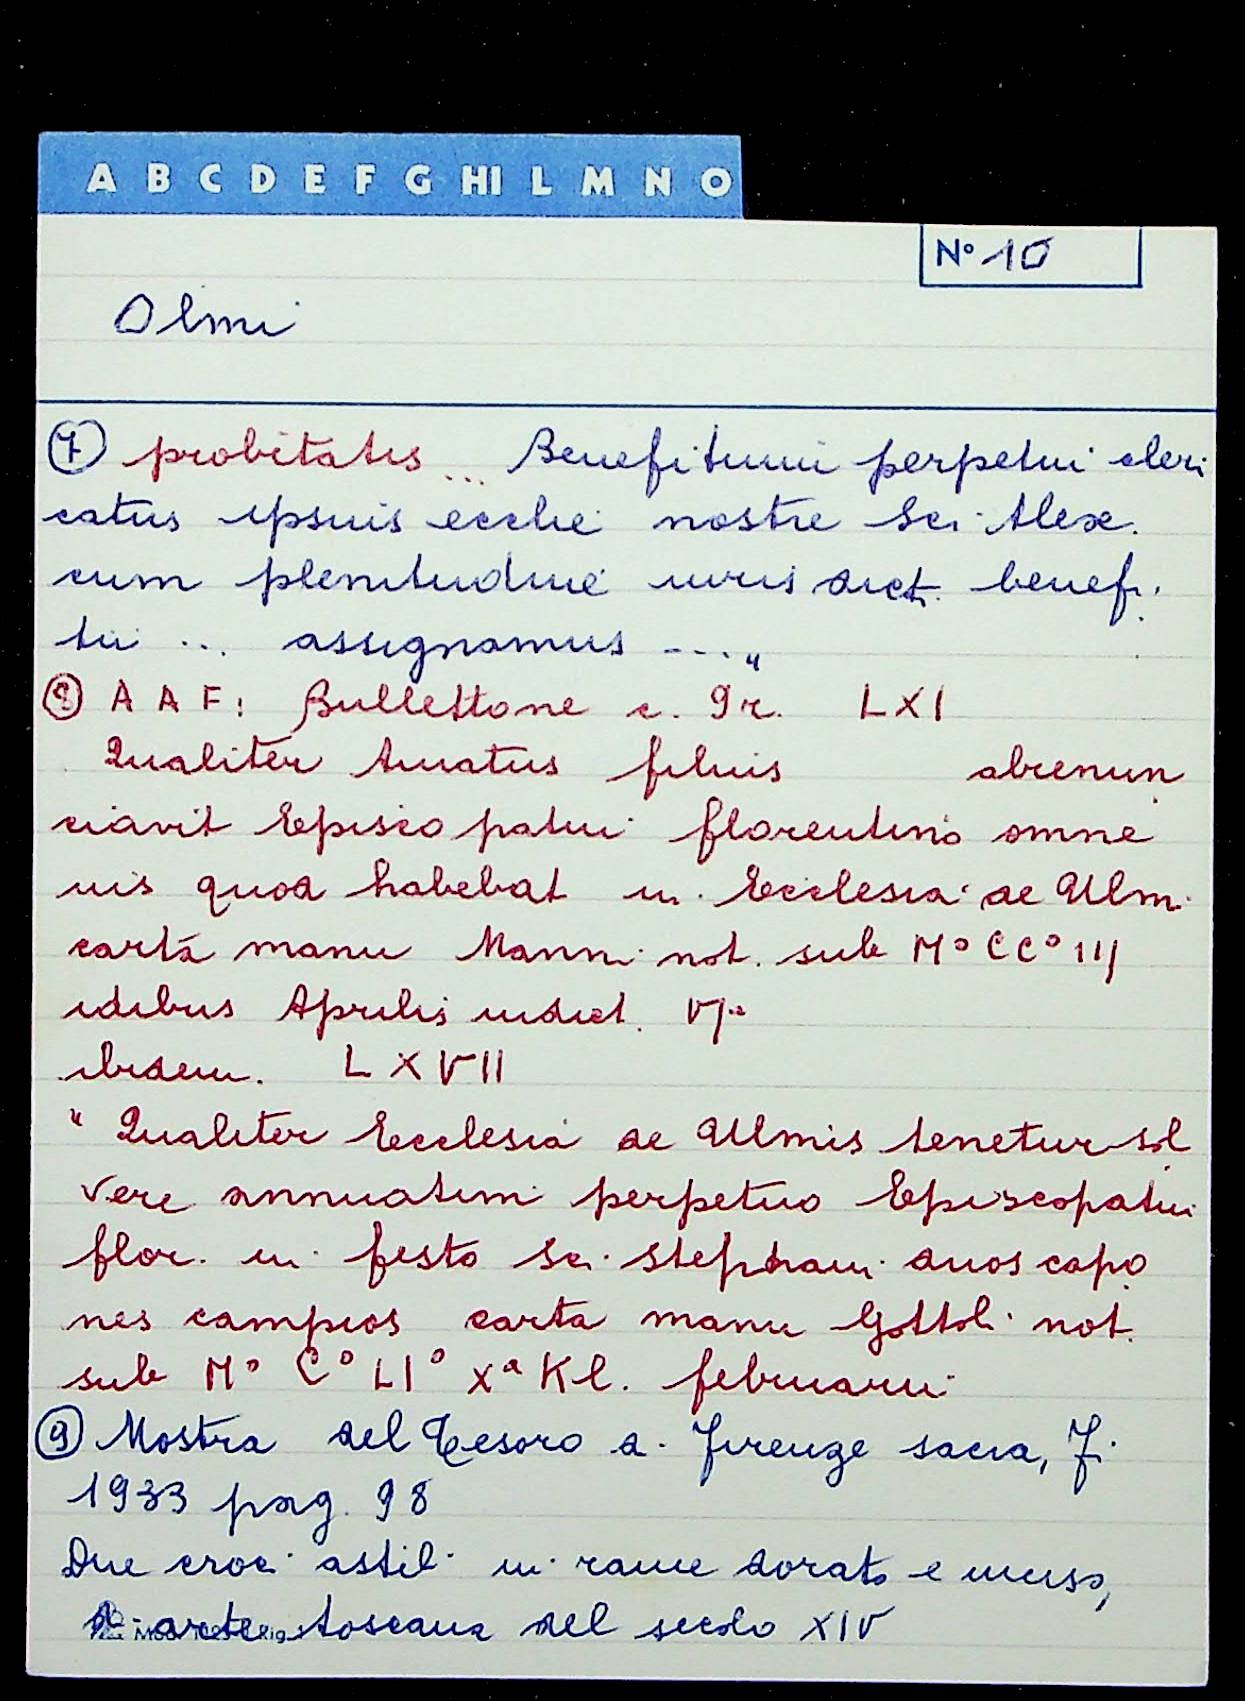 A B C D E F G HI L M N O
Nº 10
Olmi
7 probitatis ... Benefitium perpetui cleri
catus ipsius ecclie nostre Sci Alex.
cum plenitudine iuris dict. benefi
tii ... assignamus ...."
8 A A F: Bullettone c. 9r. LXI
Qualiter Amatus filius abrenun
ciavit Episcopatui florentino omne
ius quod habebat in Ecclesia de Ulm.
carta manu Manni not. sub Mº CCº iij
idibus Aprilis indict. VJª
ibidem. LXVII
" Qualiter Ecclesia de Ulmis tenetur sol
vere annuatim perpetuo Episcopatui
flor. in festo Sci Stephani duos capo
nes campios carta manu Gottoli not.
sub Mº Cº LIº Xª Kl. februarii
9 Mostra del Tesoro di Firenze sacra, F.
1933 pag. 98
Due croci astili in rame dorato e inciso,
di arte toscana del secolo XIV